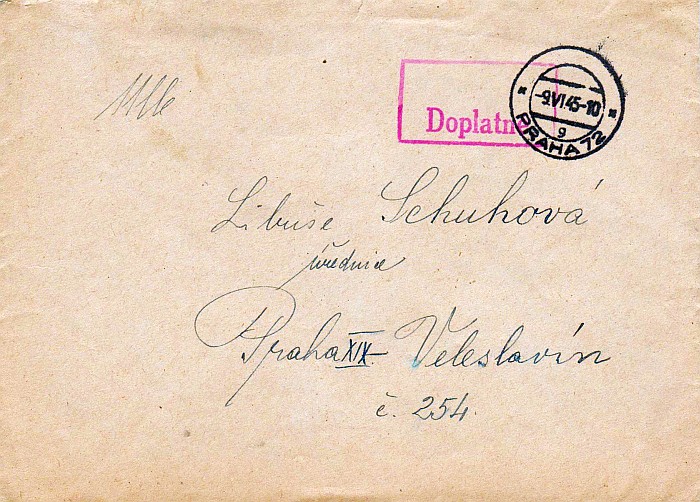 Doplatné
-9.VI.45-10
g
PRAHA 72
Libuše Schuhová
úřednice
Praha XIX - Veleslavín
č. 254.